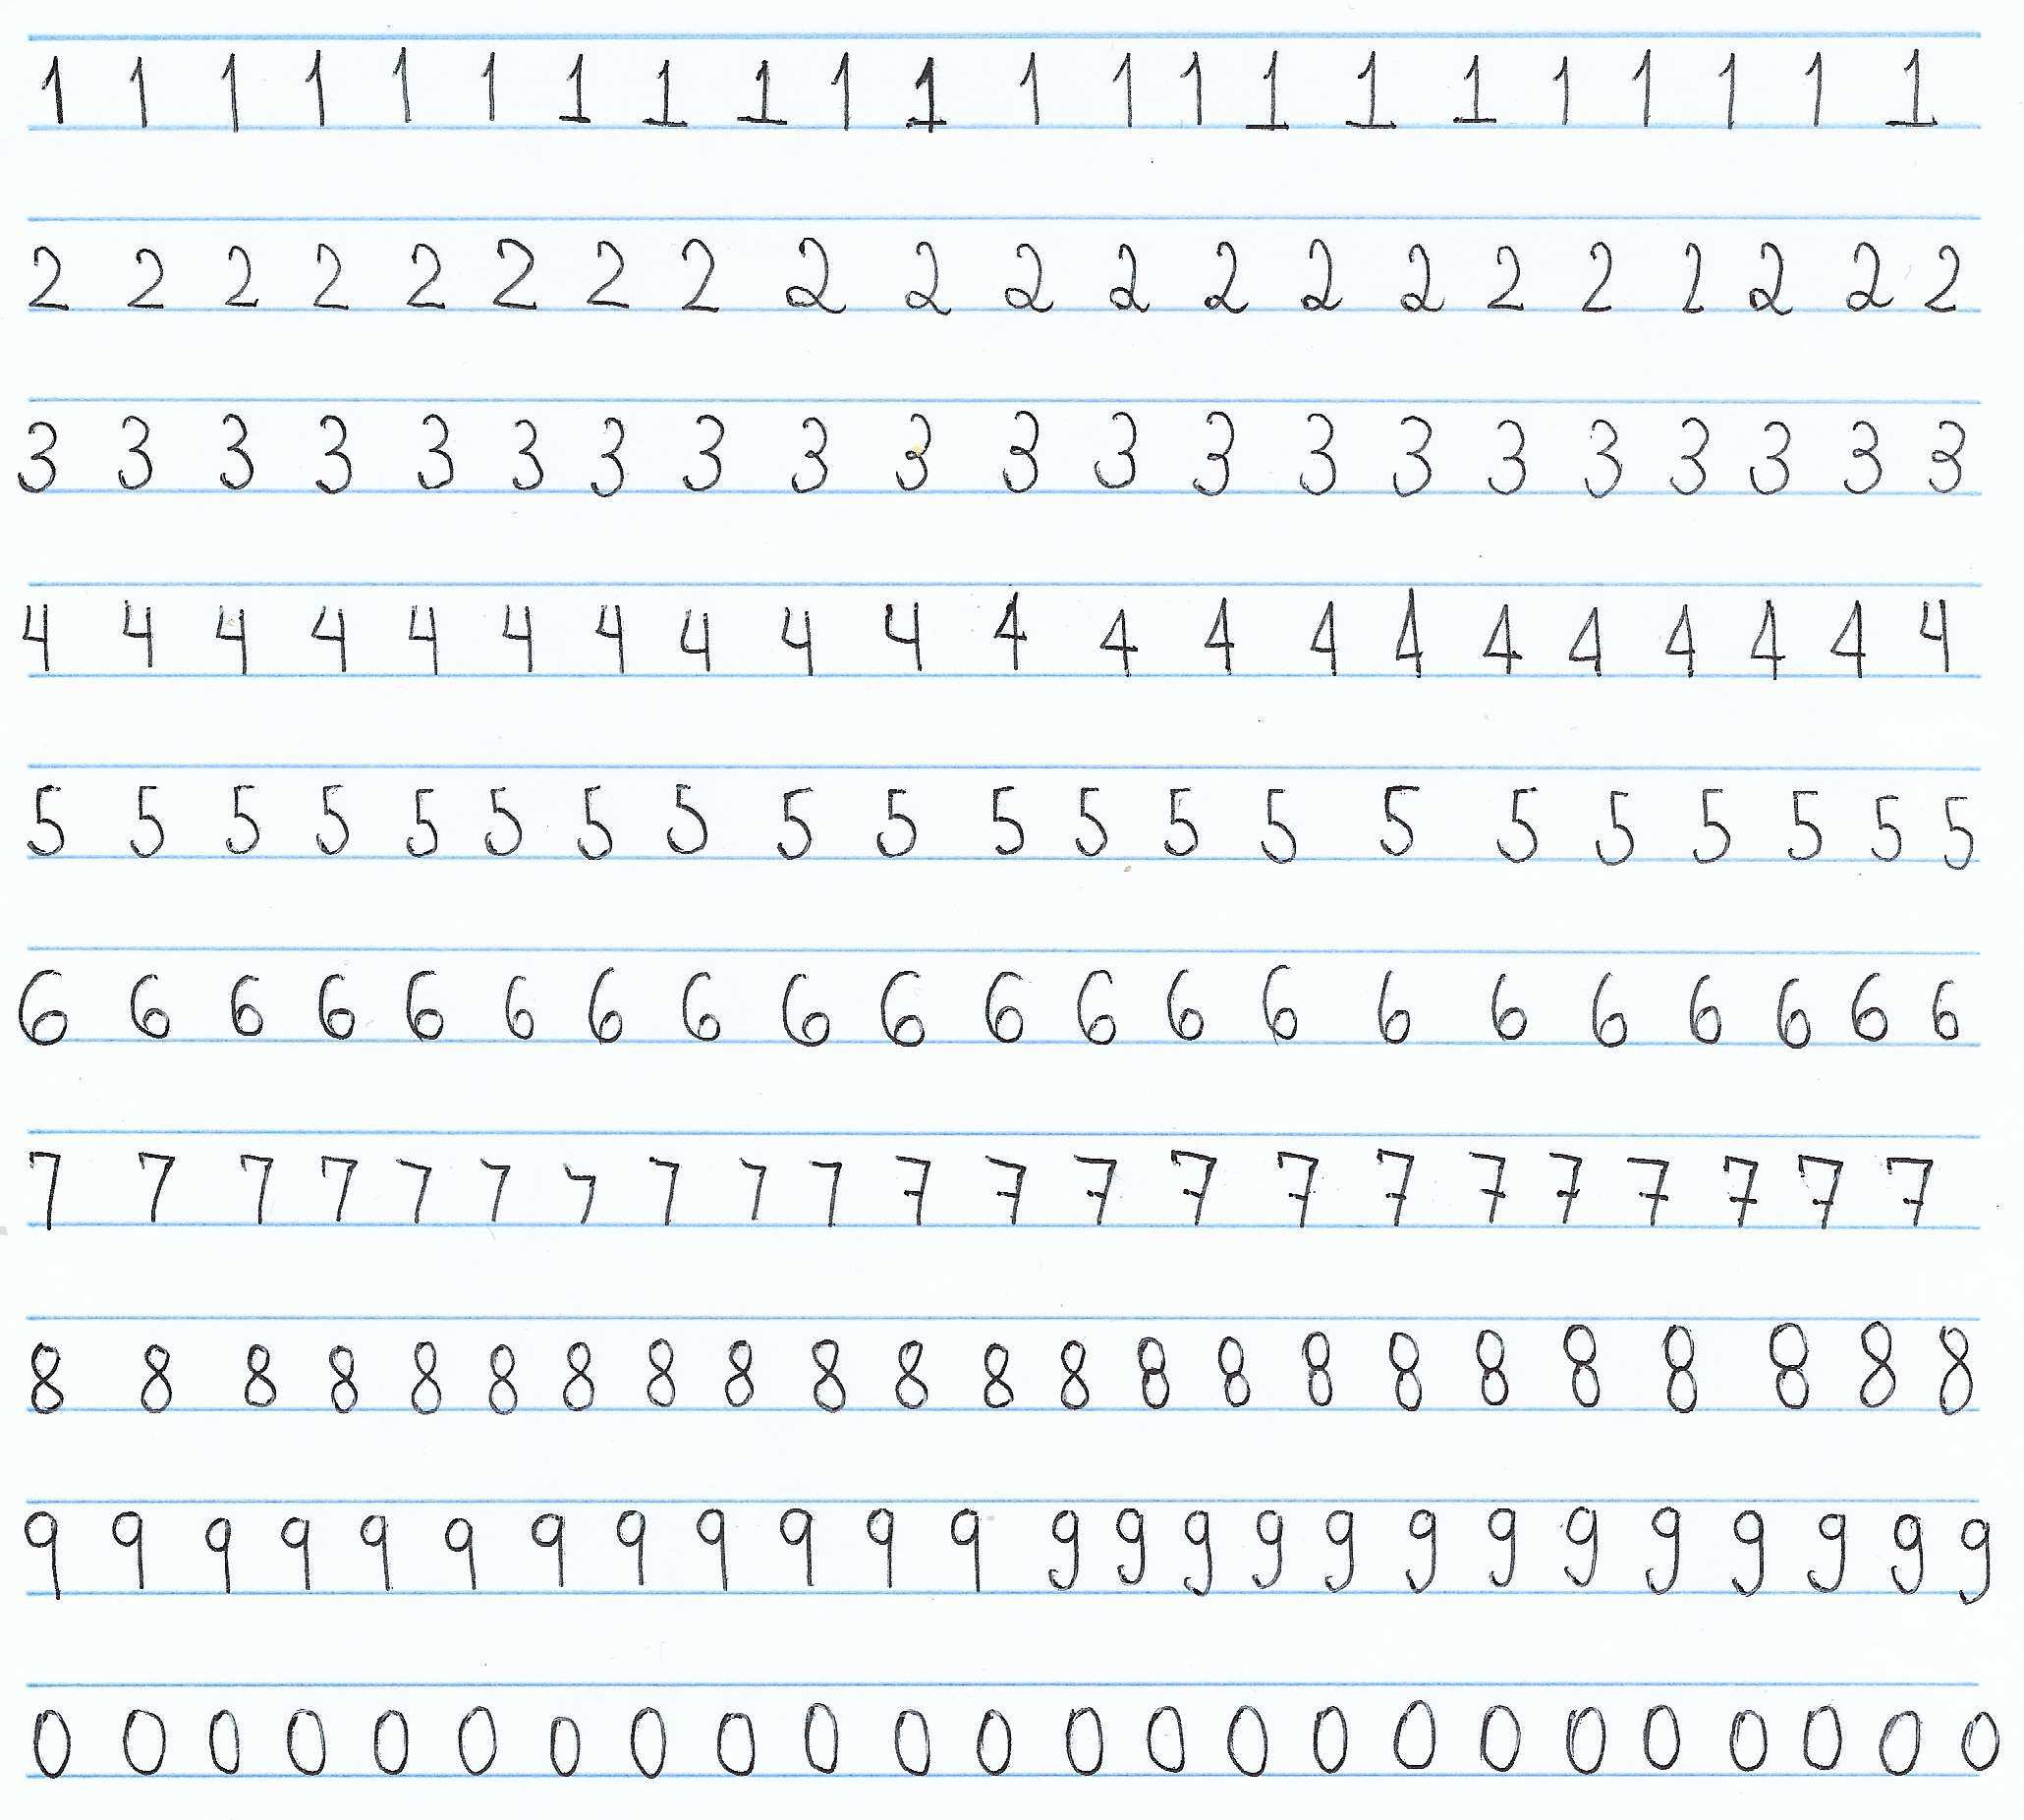 1 1 1 1 1 1 1 1 1 1 1 1 1 1 1 1 1 1 1 1 1 1
2 2 2 2 2 2 2 2 2 2 2 2 2 2 2 2 2 2 2 2 2
3 3 3 3 3 3 3 3 3 3 3 3 3 3 3 3 3 3 3 3 3
4 4 4 4 4 4 4 4 4 4 4 4 4 4 4 4 4 4 4 4 4
5 5 5 5 5 5 5 5 5 5 5 5 5 5 5 5 5 5 5 5 5
6 6 6 6 6 6 6 6 6 6 6 6 6 6 6 6 6 6 6 6 6
7 7 7 7 7 7 7 7 7 7 7 7 7 7 7 7 7 7 7 7 7 7
8 8 8 8 8 8 8 8 8 8 8 8 8 8 8 8 8 8 8 8 8 8 8
9 9 9 9 9 9 9 9 9 9 9 9 9 9 9 9 9 9 9 9 9 9 9 9 9
0 0 0 0 0 0 0 0 0 0 0 0 0 0 0 0 0 0 0 0 0 0 0 0